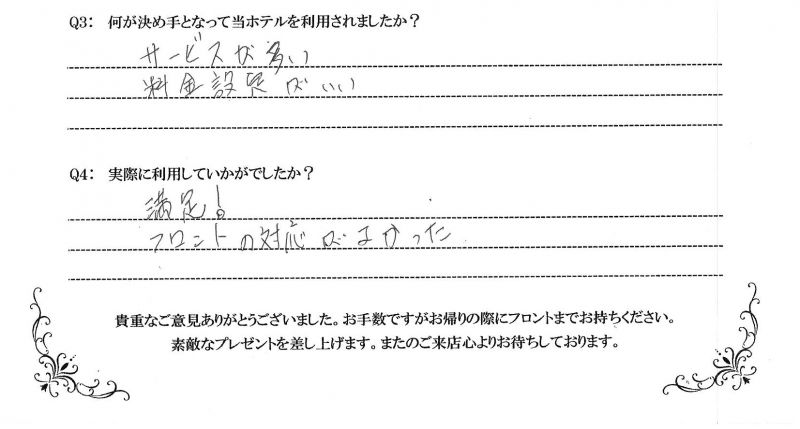 Q3： 何が決め手となって当ホテルを利用されましたか？
サービスが多い
料金設定がいい
Q4： 実際に利用していかがでしたか？
満足！
フロントの対応がよかった
貴重なご意見ありがとうございました。お手数ですがお帰りの際にフロントまでお持ちください。
素敵なプレゼントを差し上げます。またのご来店心よりお待ちしております。